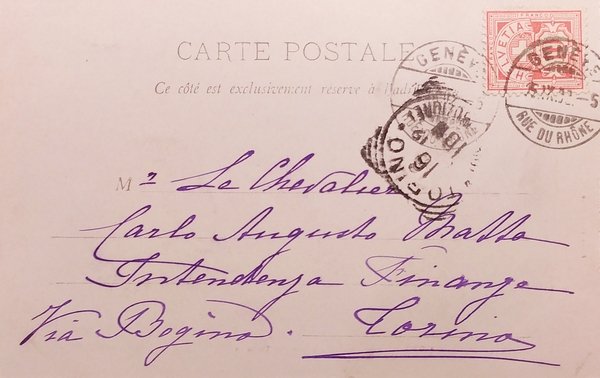 CARTE POSTALE
Ce côté est exclusivement réservé à l'adr
HELVETIA
FRANCO
GENÈVE
GENÈVE
RUE DU RHÔNE
TORINO
16
12
M r Le Chevalier
Carlo Augusto Matta
Intendenza Finanze
Via Bogino. Torino